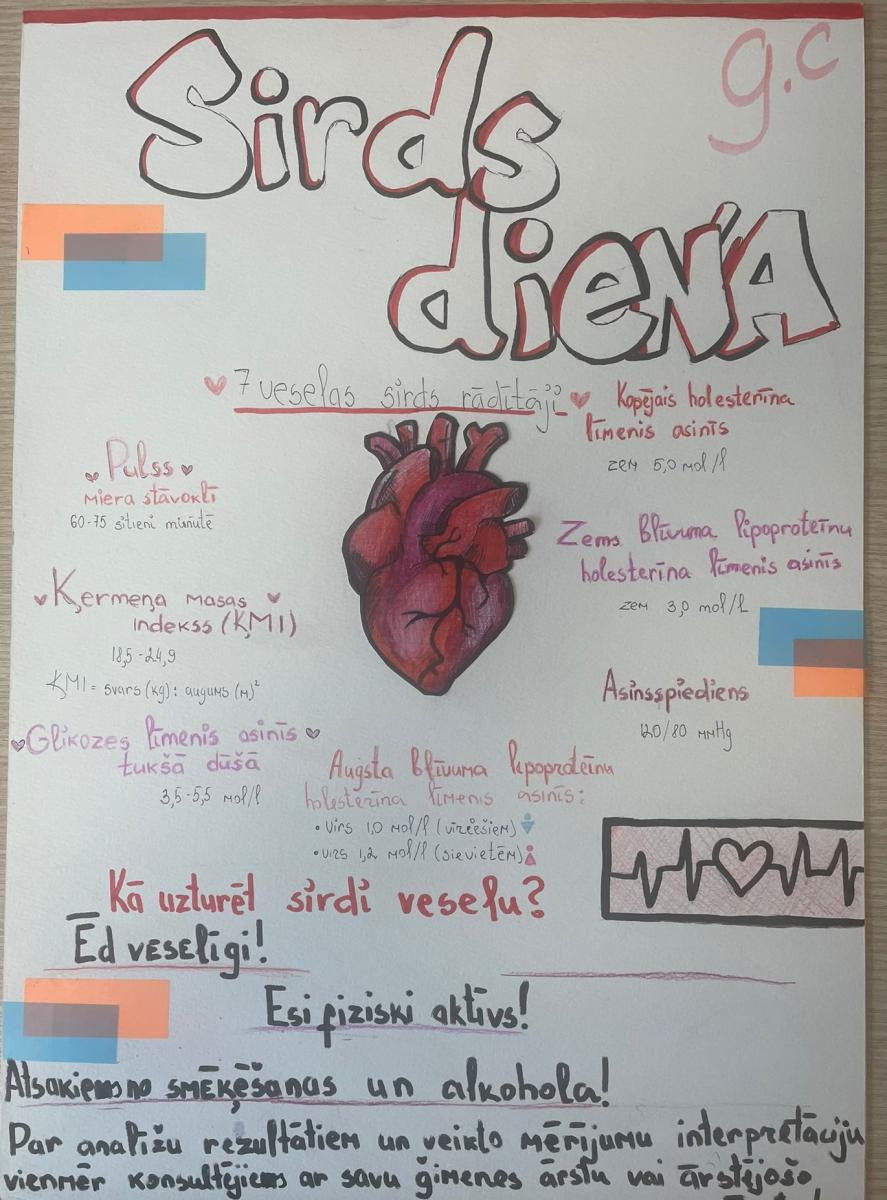 Sirds
9.c
dienA
7 veselas sirds rādītāji
Kopējais holesterīna
līmenis asinīs
zem 5,0 mol/l
Pulss
miera stāvoklī
60-75 sitieni minūtē
Zems blīvuma lipoproteīnu
holesterīna līmenis asinīs
zem 3,0 mol/l
Ķermeņa masas
indekss (ĶMI)
18,5-24,9
ĶMI = svars (kg) : augums (m)²
Asinsspiediens
120/80 mmHg
Glikozes līmenis asinīs
tukšā dūšā
3,5-5,5 mol/l
Augsta blīvuma lipoproteīnu
holesterīna līmenis asinīs:
• virs 1,0 mol/l (vīriešiem)
• virs 1,2 mol/l (sievietēm)
Kā uzturēt sirdi veselu?
Ēd veselīgi!
Esi fiziski aktīvs!
Atsakiems no smēķēšanas un alkohola!
Par analīžu rezultātiem un veikto mērījumu interpretāciju
vienmēr konsultējiems ar savu ģimenes ārstu vai ārstējošo